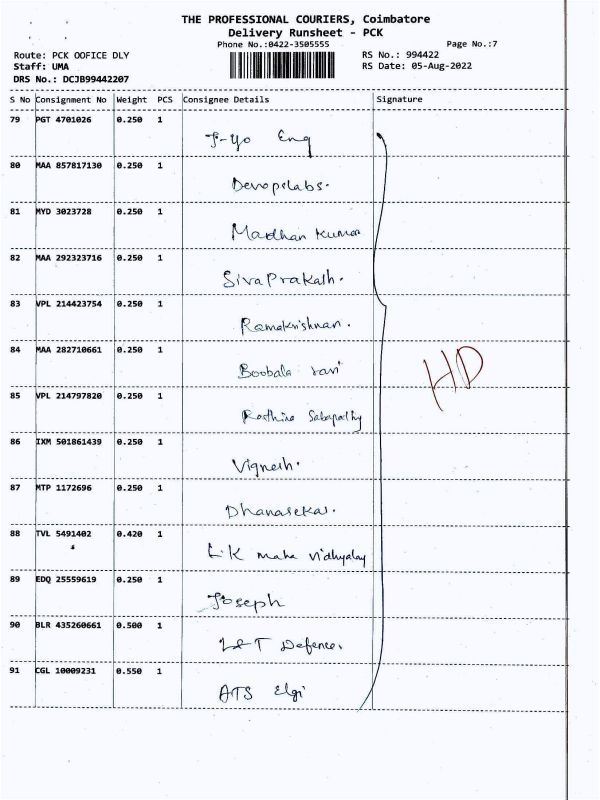 THE PROFESSIONAL COURIERS, Coimbatore
Delivery Runsheet - PCK
Phone No.:0422-3505555 Page No.:7
Route: PCK OOFICE DLY RS No.: 994422
Staff: UMA RS Date: 05-Aug-2022
DRS No.: DCJB99442207
S No Consignment No Weight PCS Consignee Details Signature
79 PGT 4701026 0.250 1
Eng
80 MAA 857817130 0.250 1
Devopslabs.
81 MYD 3023728 0.250 1
Madhan Kumar
82 MAA 292323716 0.250 1
SivaPrakash.
83 VPL 214423754 0.250 1
Ramakrishnan.
84 MAA 282710661 0.250 1
Boobala ravi
HD
85 VPL 214797820 0.250 1
Sabapathy
86 IXM 501861439 0.250 1
Vignesh.
87 MTP 1172696 0.250 1
Dhanasekar.
88 TVL 5491402 0.420 1
maha vidhyalay
89 EDQ 25559619 0.250 1
Joseph
90 BLR 435260661 0.500 1
L&T Defence.
91 CGL 10009231 0.550 1
ATS Elgi